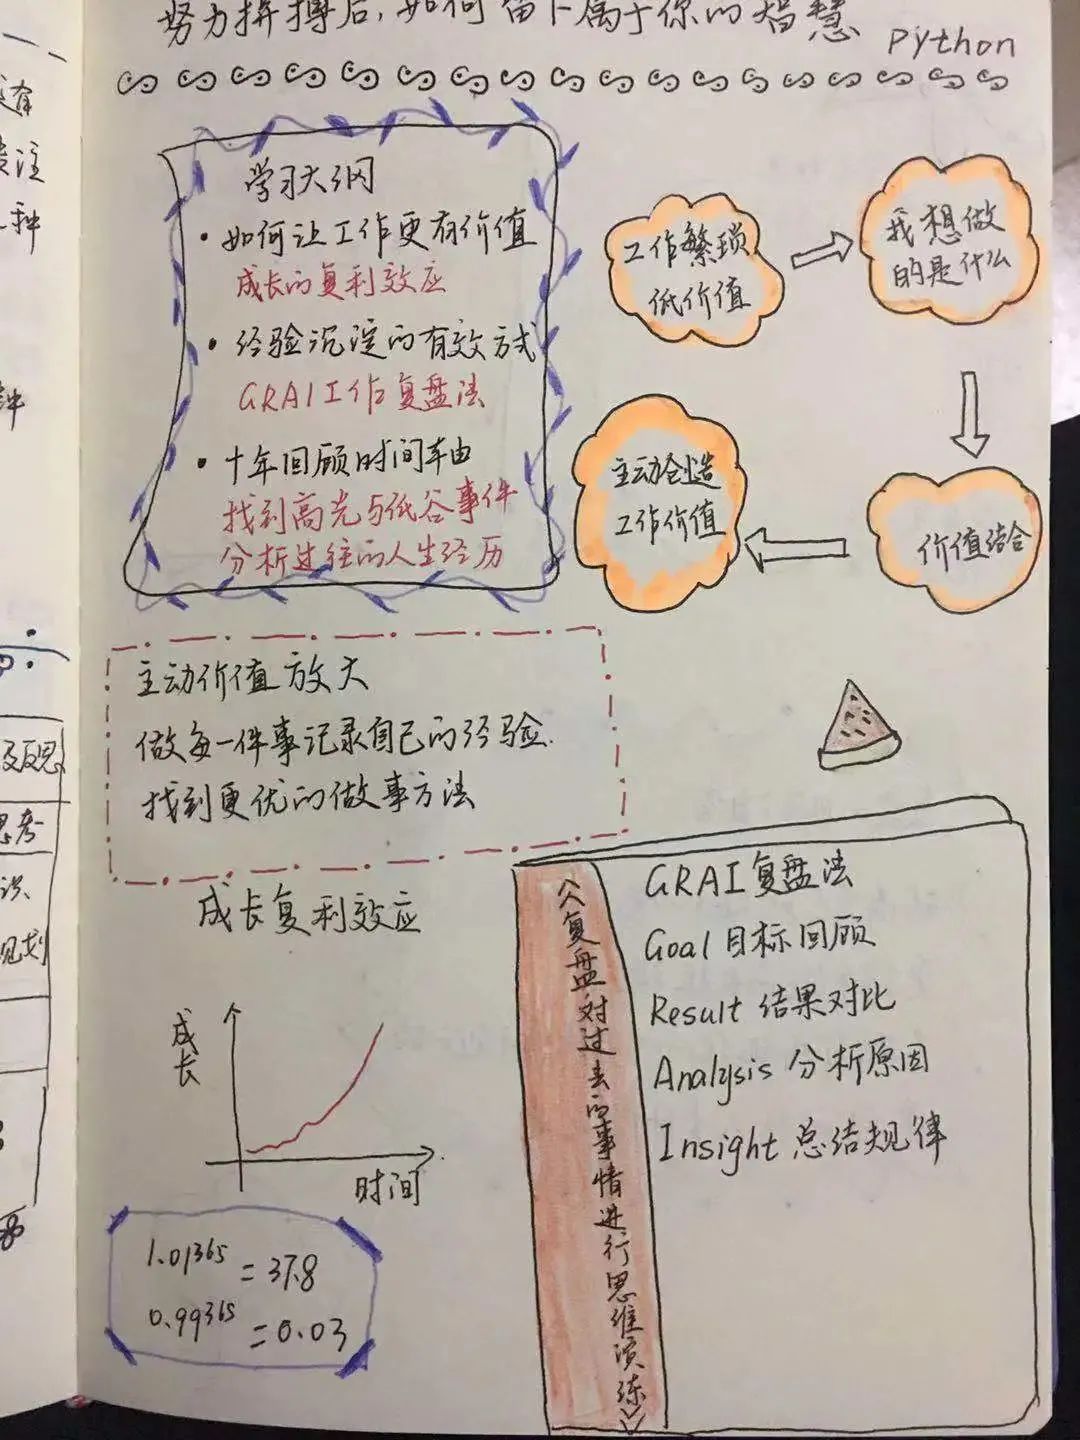 努力拼搏后,如何留下属于你的智慧
python
学习大纲
• 如何让工作更有价值
成长的复利效应
• 经验沉淀的有效方式
GRAI工作复盘法
• 十年回顾时间轴
找到高光与低谷事件
分析过往的人生经历
工作繁琐
低价值
我想做
的是什么
价值结合
主动创造
工作价值
主动价值放大
做每一件事记录自己的经验.
找到更优的做事方法
成长复利效应
成长
时间
1.01365 = 37.8
0.99365 = 0.03
《复盘对过去的事情进行思维演练》
GRAI复盘法
Goal 目标回顾
Result 结果对比
Analysis 分析原因
Insight 总结规律
注
一种
钟
及反思
思考
识、
规划